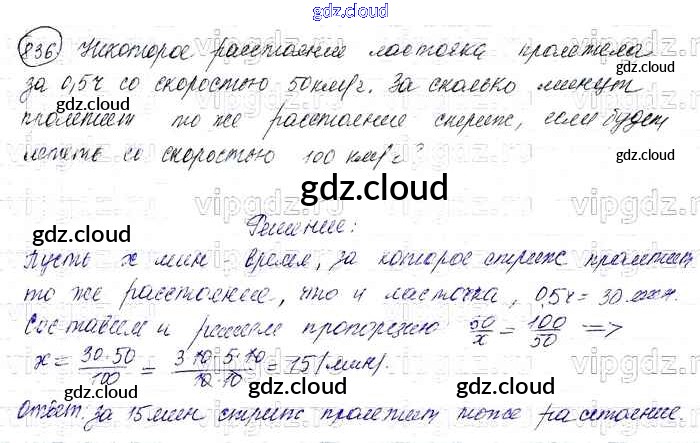 gdz.cloud
836. Некоторое расстояние ласточка пролетела
за 0,5ч со скоростью 50км/ч. За сколько минут
пролетит то же расстояние стриж, если будет
лететь со скоростью 100 км/ч?
Решение:
Пусть x мин - время, за которое стриж пролетит
то же расстояние, что и ласточка, 0,5ч = 30 мин.
Составим и решим пропорцию 50/x = 100/50 =>
x = 30·50/100 = 3·10·5·10/10·10 = 15 (мин).
Ответ: за 15 мин стриж пролетит то же расстояние.
gdz.cloud
gdz.cloud
gdz.cloud
gdz.cloud
gdz.cloud
gdz.cloud
gdz.cloud
gdz.cloud
vipgdz.net